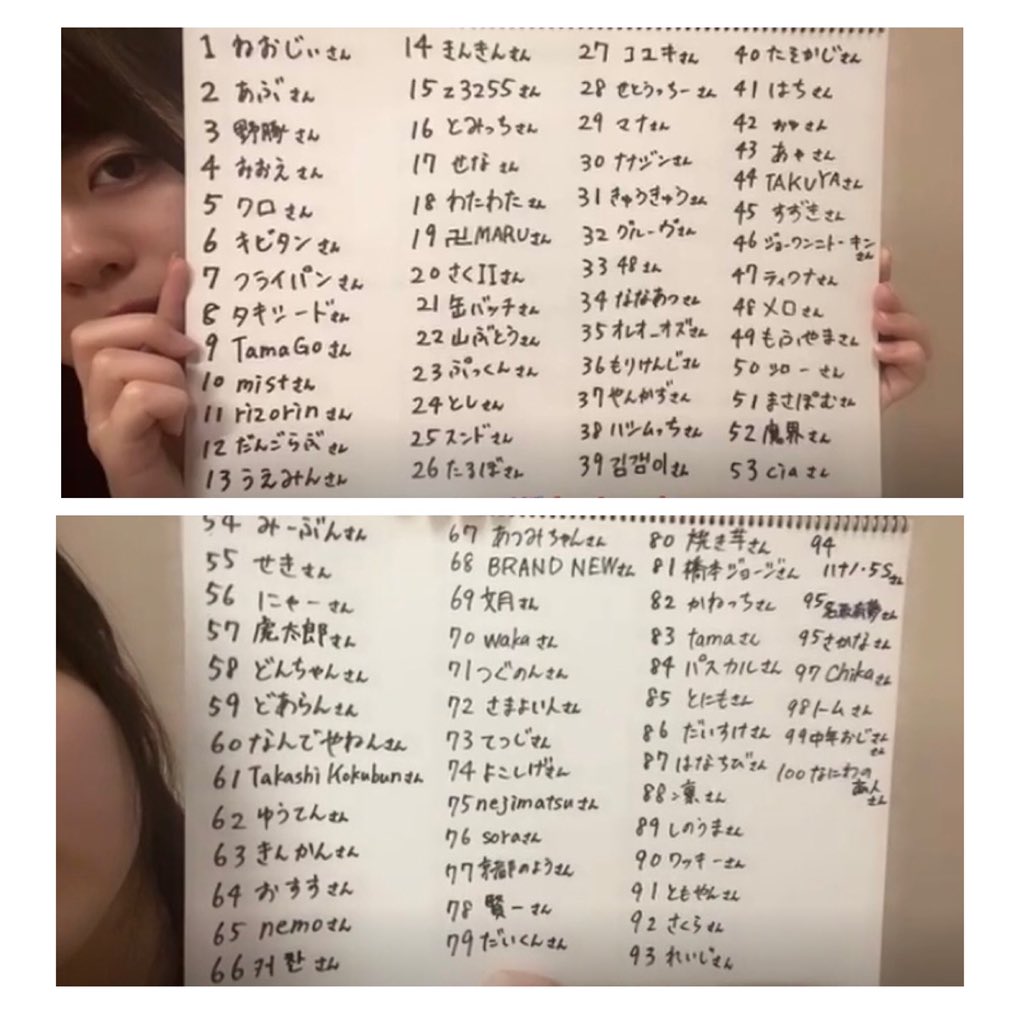 1 ねおじぃさん
2 あぶさん
3 野豚さん
4 おおえさん
5 クロさん
6 キビタンさん
7 フライパンさん
8 タキシードさん
9 TamaGoさん
10 mistさん
11 rizorinさん
12 だんごらぶさん
13 うえみんさん
14 きんきんさん
15 z3255さん
16 とみっちさん
17 せなさん
18 わたわたさん
19 卍MARUさん
20 さくIIさん
21 缶バッチさん
22 山ぶどうさん
23 ぷっくんさん
24 としさん
25 スンドさん
26 たるぼさん
27 コユキさん
28 せとうっちーさん
29 マナさん
30 ナナジンさん
31 きゅうきゅうさん
32 グルーヴさん
33 48さん
34 ななあつさん
35 オレオーオズさん
36 もりけんじさん
37 やんかずさん
38 ハシムっちさん
39 김갬이さん
40 たそかじさん
41 はちさん
42 かゃさん
43 あゃさん
44 TAKUYAさん
45 すずきさん
46 ジョーワンニトーキン
さん
47 ティワナさん
48 メロさん
49 もふやまさん
50 ツローさん
51 まさぽむさん
52 魔界さん
53 ciaさん
54 みーぶんさん
55 せきさん
56 にゃーさん
57 虎太郎さん
58 どんちゃんさん
59 どあらんさん
60 なんでやねんさん
61 Takashi Kokubunさん
62 ゆうてんさん
63 きんかんさん
64 おすすさん
65 nemoさん
66 커환さん
67 あつみちゃんさん
68 BRAND NEWさん
69 文月さん
70 wakaさん
71 つぐのんさん
72 さまよい人さん
73 てつじさん
74 よこしげさん
75 nejimatsuさん
76 soraさん
77 京都のようさん
78 賢一さん
79 だいくんさん
80 焼き芋さん
81 橋本ジョージさん
82 かねっちさん
83 tamaさん
84 パスカルさん
85 とにもさん
86 だいすけさん
87 はなちびさん
88 凛さん
89 しのうまさん
90 ワッキーさん
91 ともやんさん
92 さくらさん
93 れいじさん
94
ハナノ・5Sさん
95 さん
95 さかなさん
97 Chikaさん
98 トムさん
99 中年おじさん
さん
100 なにわの
あん
さん